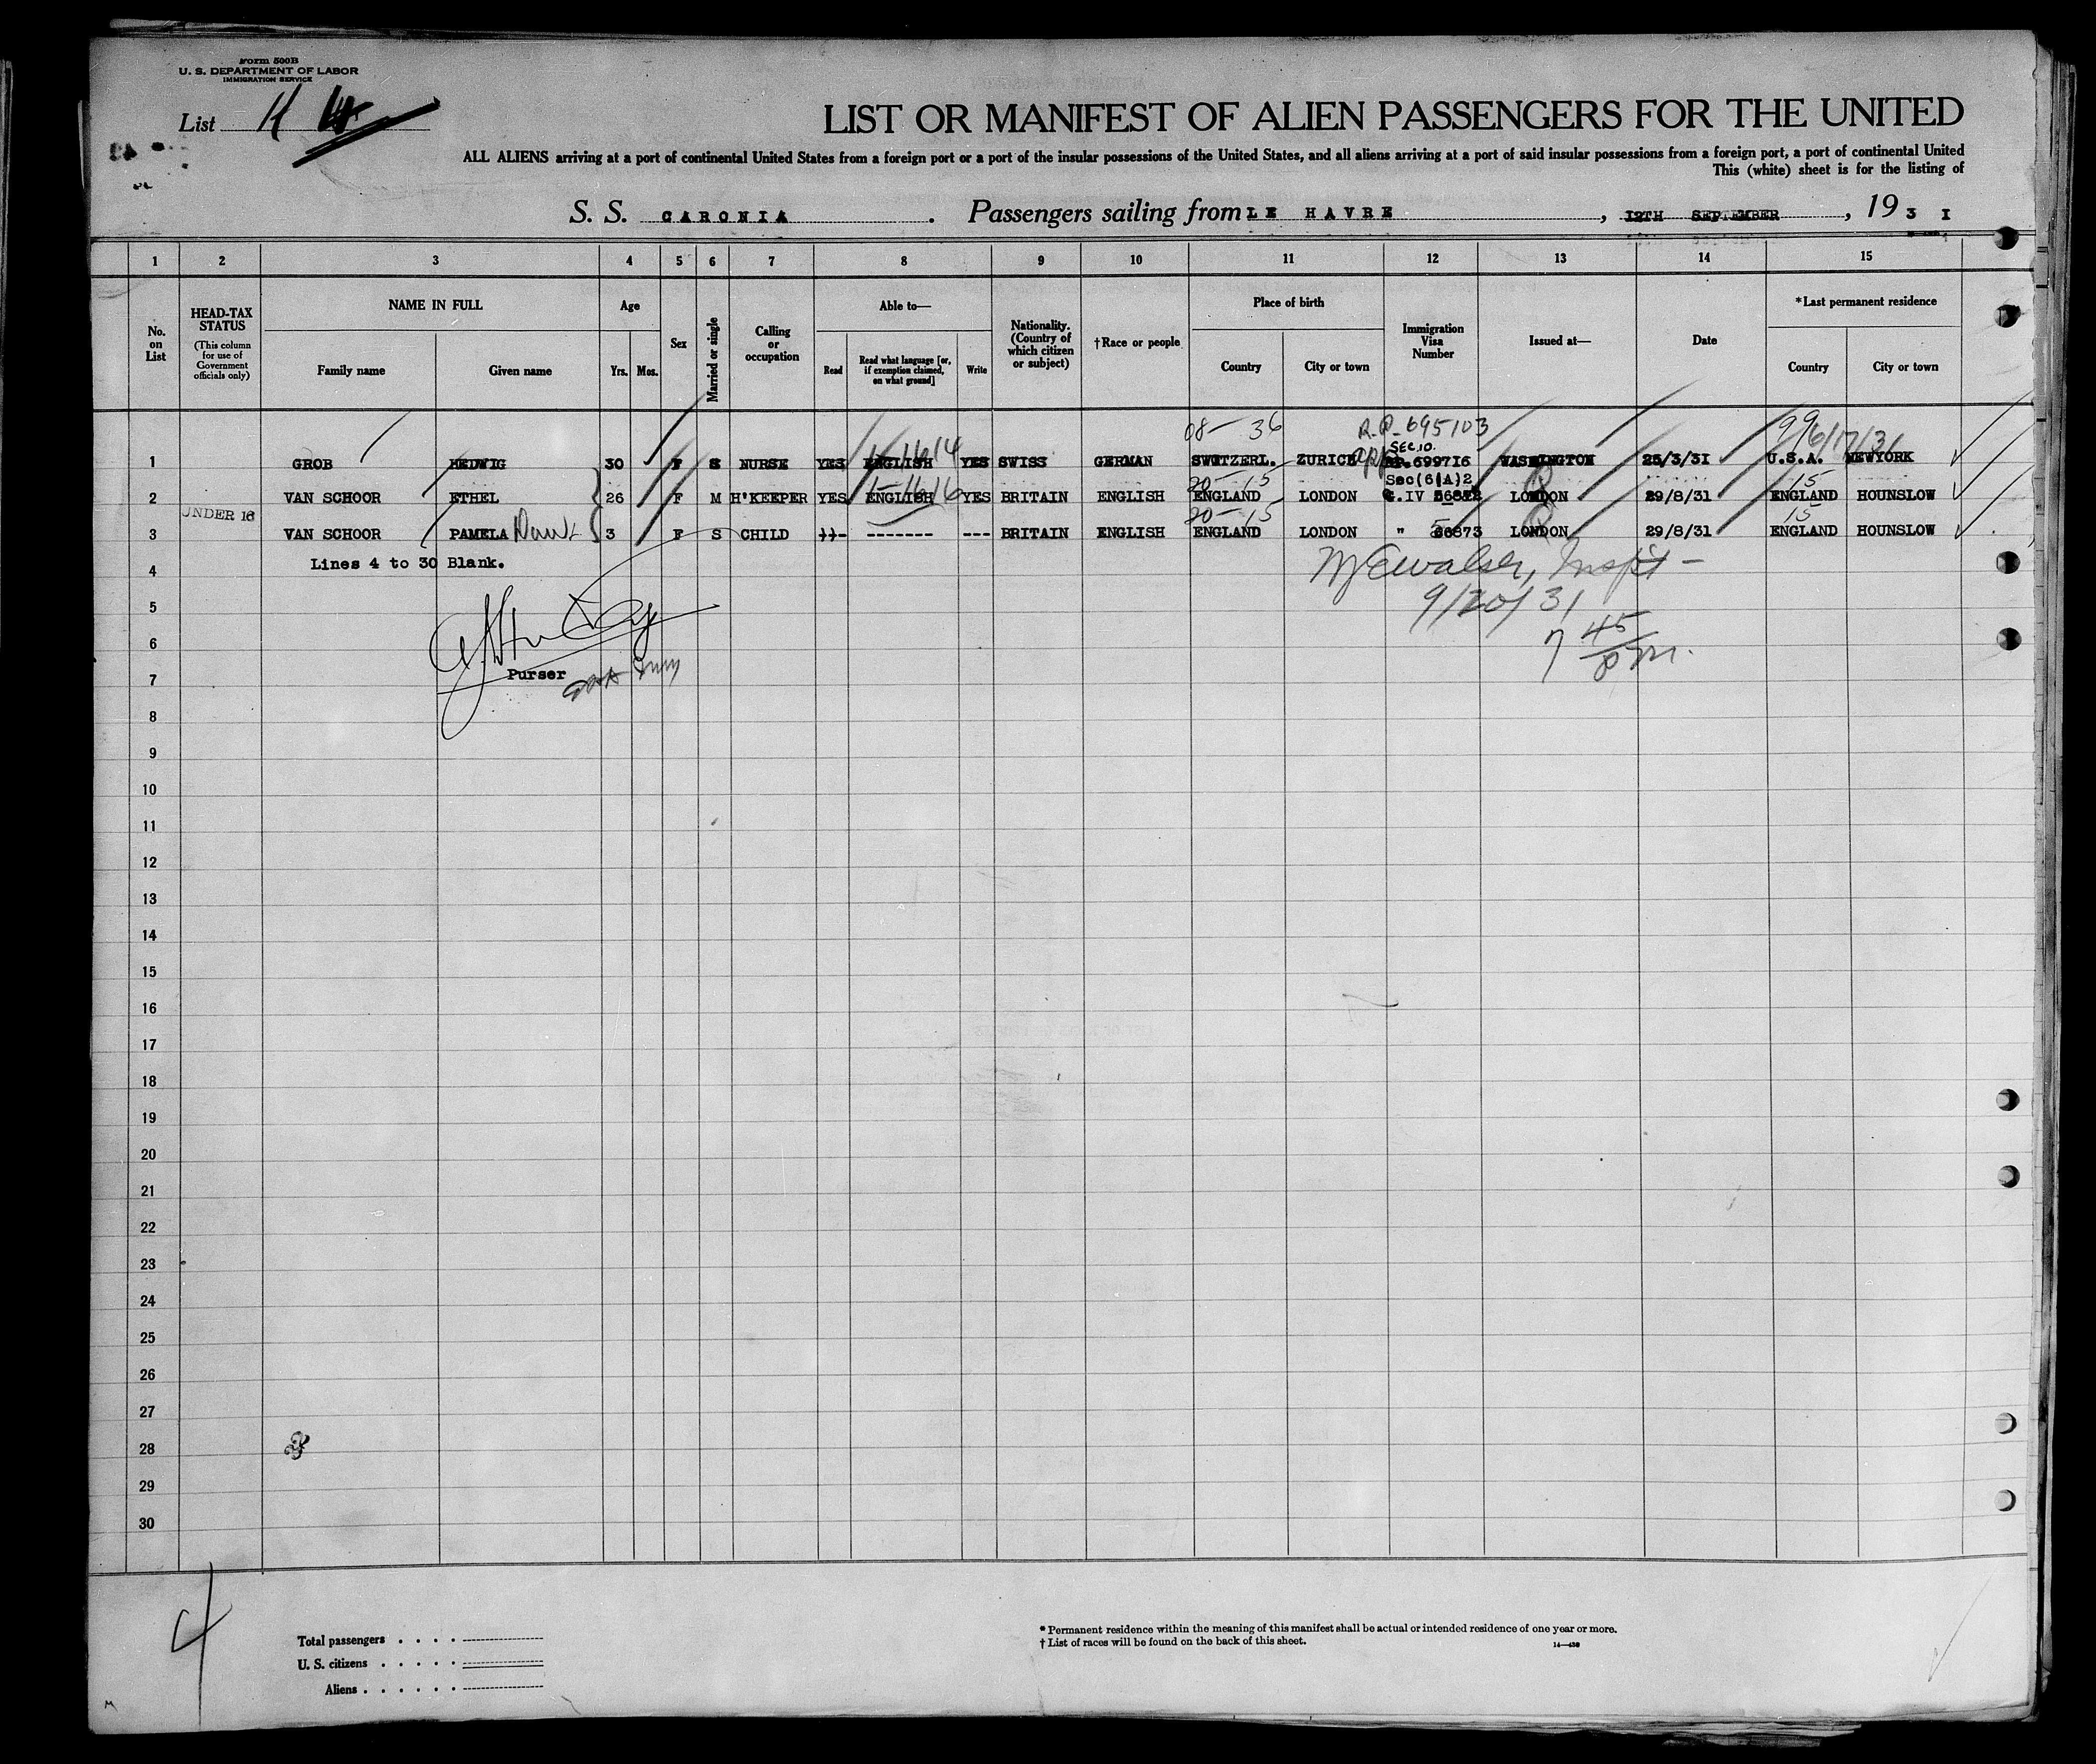 Form 500B
U. S. DEPARTMENT OF LABOR
IMMIGRATION SERVICE
List
LIST OR MANIFEST OF ALIEN PASSENGERS FOR THE UNITED
ALL ALIENS arriving at a port of continental United States from a foreign port or a port of the insular possessions of the United States, and all aliens arriving at a port of said insular possessions from a foreign port, a port of continental United
This (white) sheet is for the listing of
S. S. CARONIA . Passengers sailing from LE HAVRE , 12TH SEPTEMBER , 193I
1 2 3 4 5 6 7 8 9 10 11 12 13 14 15
No. on List
HEAD-TAX STATUS (This column for use of Government officials only)
NAME IN FULL
Family name Given name
Age
Yrs. Mos.
Sex
Married or single
Calling or occupation
Able to—
Read
Read what language [or, if exemption claimed, on what ground]
Write
Nationality. (Country of which citizen or subject)
†Race or people
Place of birth
Country City or town
Immigration Visa Number
Issued at—
Date
*Last permanent residence
Country City or town
08— 36 R.P.-695103 99
SEC.10. 6/17/31
1 GROB HEDWIG 30 F S NURSE YES ENGLISH YES SWISS GERMAN SWITZERL. ZURICH RP.699716 WASHINGTON 25/3/3I U.S.A. NEWYORK
20—15 Sec(6(A)2 15
2 VAN SCHOOR ETHEL 26 F M H'KEEPER YES ENGLISH YES BRITAIN ENGLISH ENGLAND LONDON LONDON 29/8/31 ENGLAND HOUNSLOW
UNDER 16 20—15 15
3 VAN SCHOOR PAMELA 3 F S CHILD ------- --- BRITAIN ENGLISH ENGLAND LONDON " LONDON 29/8/31 ENGLAND HOUNSLOW
4 Lines 4 to 30 Blank.
5 9/20/31
6 7 45 pm.
7 Purser
8
9
10
11
12
13
14
15
16
17
18
19
20
21
22
23
24
25
26
27
28
29
30
4
Total passengers . . . .
U. S. citizens . . . . .
Aliens . . . . . .
* Permanent residence within the meaning of this manifest shall be actual or intended residence of one year or more.
† List of races will be found on the back of this sheet.